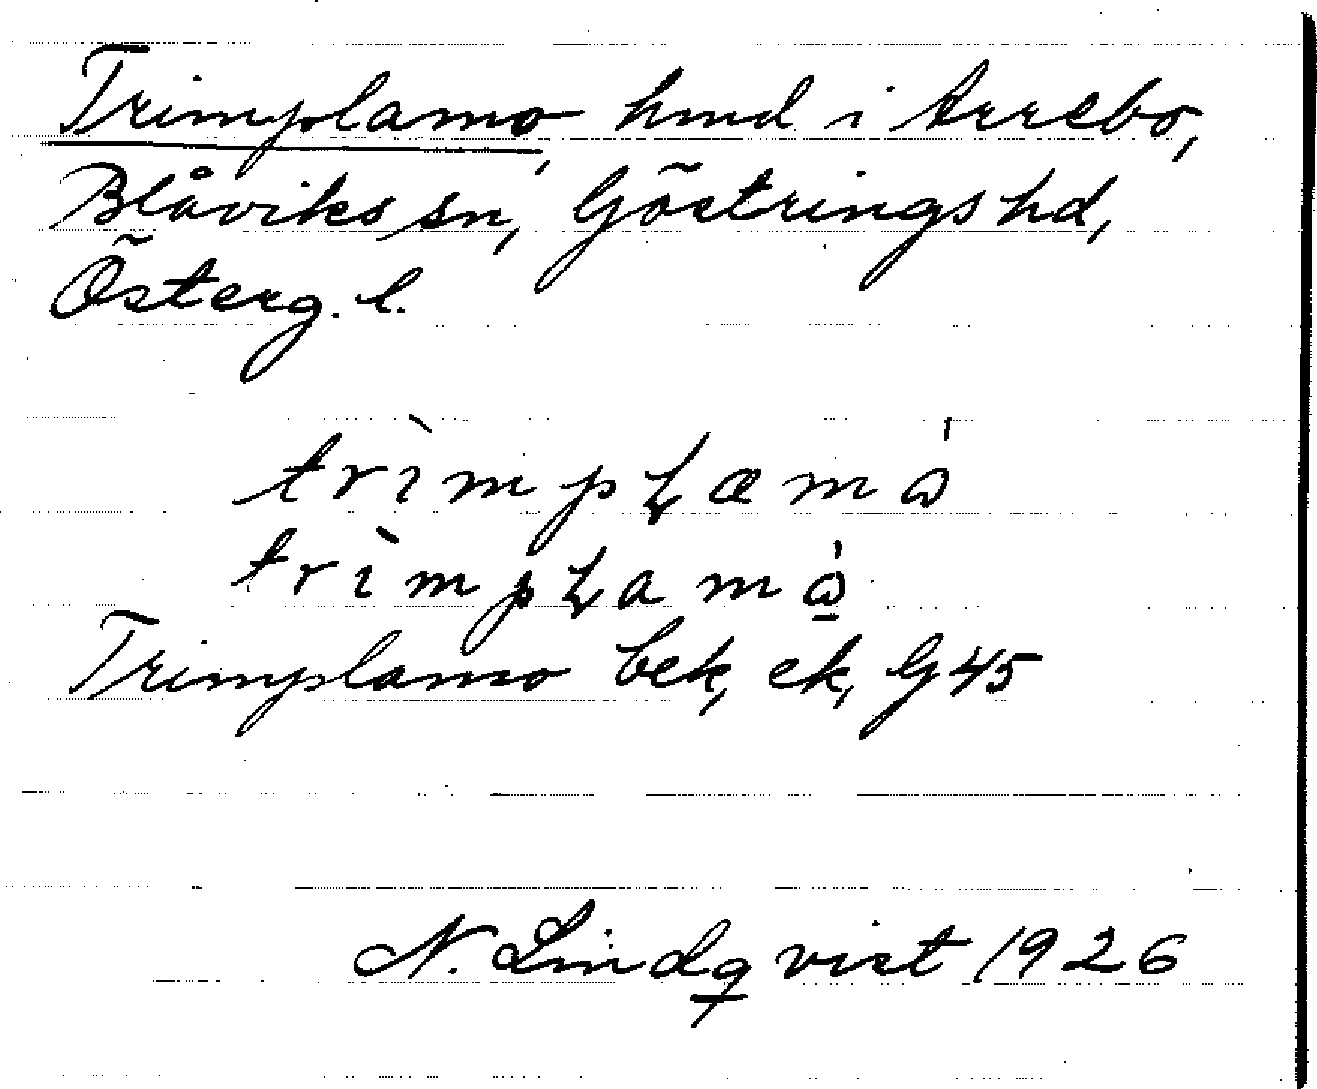 Trimplamo, hmd i Arrebo,
Blåviks sn, Göstrings hd,
Österg. l.
trìmpłamɷ́
trìmpłamɷ̱́
Trimplamo bek, ek, G 45
N. Lindqvist 1926